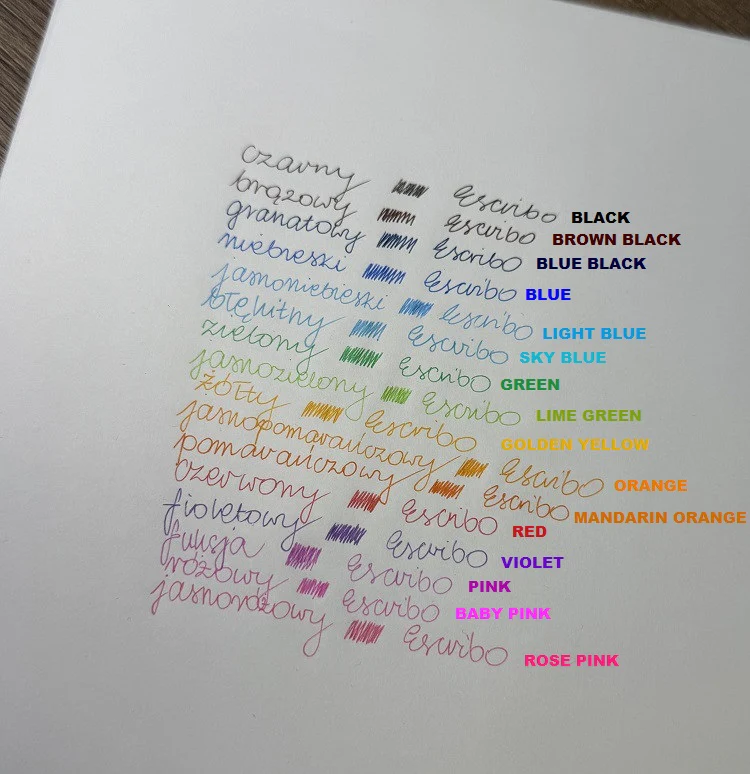 czarny Escribo BLACK
brązowy Escribo BROWN BLACK
granatowy Escribo BLUE BLACK
niebieski Escribo BLUE
jasnoniebieski Escribo LIGHT BLUE
błękitny Escribo SKY BLUE
zielony Escribo GREEN
jasnozielony Escribo LIME GREEN
żółty Escribo GOLDEN YELLOW
jasnopomarańczowy Escribo ORANGE
pomarańczowy Escribo MANDARIN ORANGE
czerwony Escribo RED
fioletowy Escribo VIOLET
fuksja Escribo PINK
różowy Escribo BABY PINK
jasnoróżowy Escribo ROSE PINK